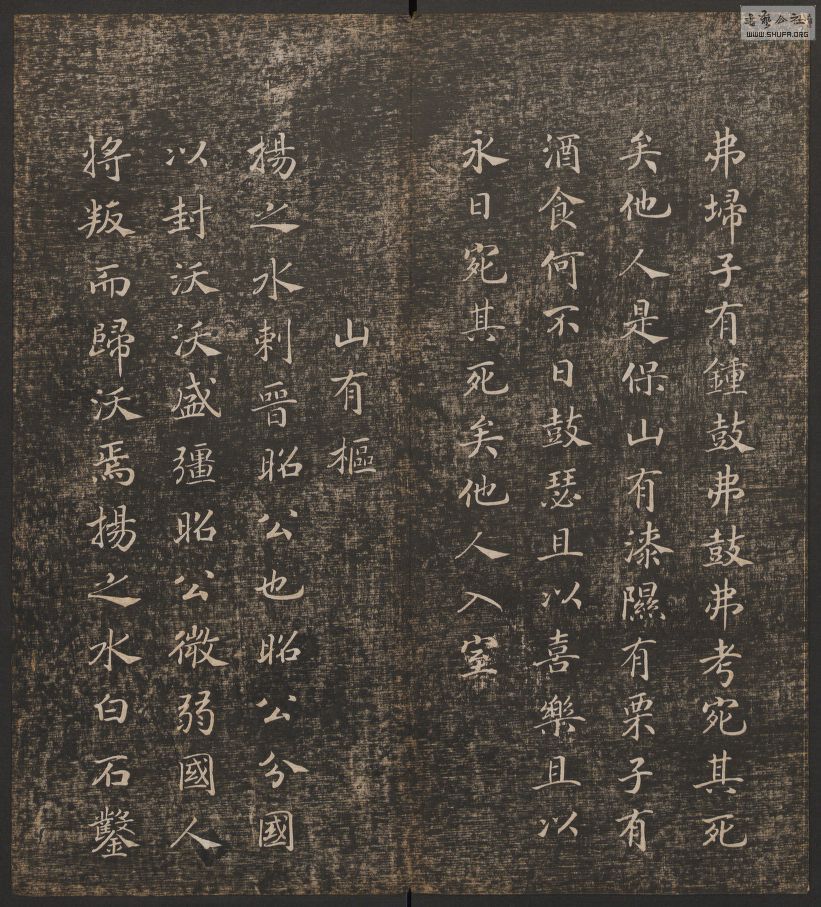 弗埽子有鍾鼓弗鼓弗考宛其死
矣他人是保山有漆隰有栗子有
酒食何不日鼓瑟且以喜樂且以
永日宛其死矣他人入室
山有樞
揚之水刺晉昭公也昭公分國
以封沃沃盛彊昭公微弱國人
將叛而歸沃焉揚之水白石鑿
WWW.SHUFA.ORG